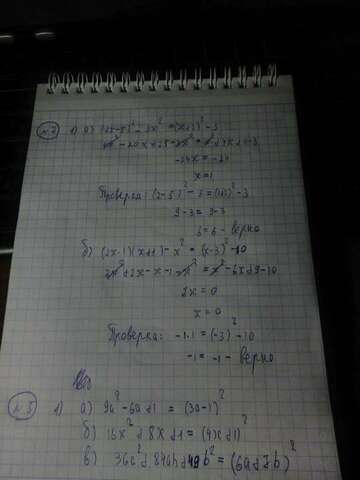 №2 1) а) (2x-5)² - 3x² = (x+2)² - 3
4x² - 20x + 25 - 3x² = x² + 4x + 4 - 3
-24x = -24
x = 1
Проверка: (2-5)² - 3 = (1+2)² - 3
9-3 = 9-3
6 = 6 - верно
б) (2x-1)(x+1) - x² = (x-3)² - 10
2x² + 2x - x - 1 - x² = x² - 6x + 9 - 10
2x = 0
x = 0
Проверка: -1·1 = (-3)² - 10
-1 = -1 - верно
№5 1) а) 9a² - 6a + 1 = (3a-1)²
б) 16x² + 8x + 1 = (4x+1)²
в) 36a² + 84ab + 49b² = (6a+7b)²